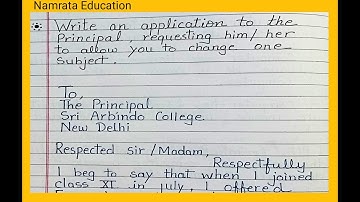 Namrata Education
Write an application to the
Principal, requesting him/her
to allow you to change one
Subject.
To,
The Principal.
Sri Arbindo College.
New Delhi
Respected sir/Madam,
Respectfully
I beg to say that when I joined
class XI in july, I offered